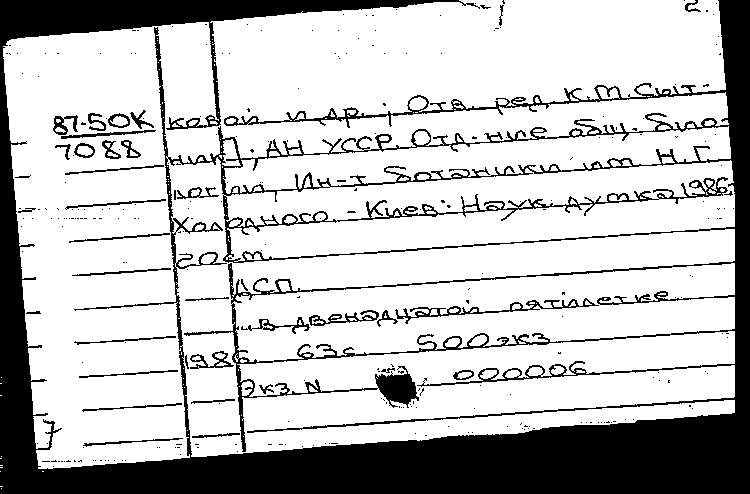 2.
87-50К ковой и др.; Отв. ред. К.М. Сыт-
7088 ник]; АН УССР. Отд-ние общ. био-
логии, Ин-т ботаники им Н.Г.
Холодного. - Киев: Наук. думка, 1986-
20см.
ДСП.
в двенадцатой пятилетке
1986. 63с. 500экз
Экз. N 000006
7